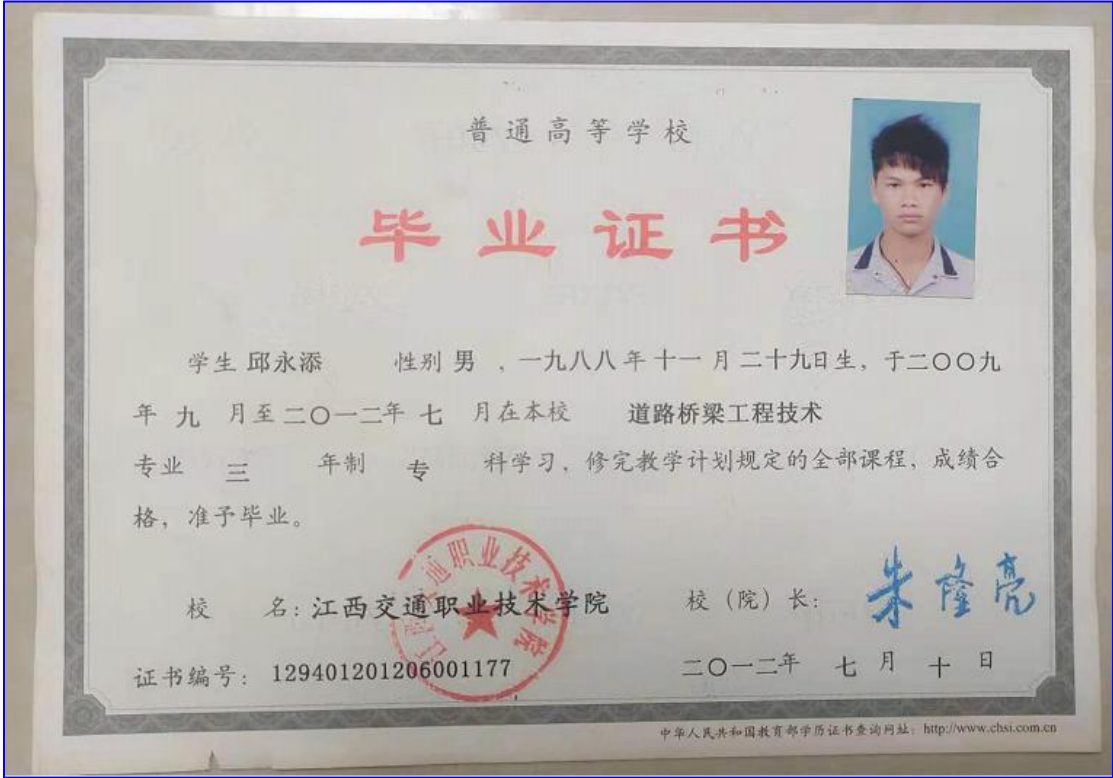 普通高等学校
毕业证书
学生 邱永添 性别 男 ，一九八八年十一月二十九日生，于二〇〇九
年 九 月至二〇一二年 七 月在本校 道路桥梁工程技术
专业 三 年制 专 科学习，修完教学计划规定的全部课程，成绩合
格，准予毕业。
江西交通职业技术学院
校 名：江西交通职业技术学院 校（院）长：朱隆亮
证书编号：129401201206001177 二〇一二年 七 月 十 日
中华人民共和国教育部学历证书查询网址：http://www.chsi.com.cn